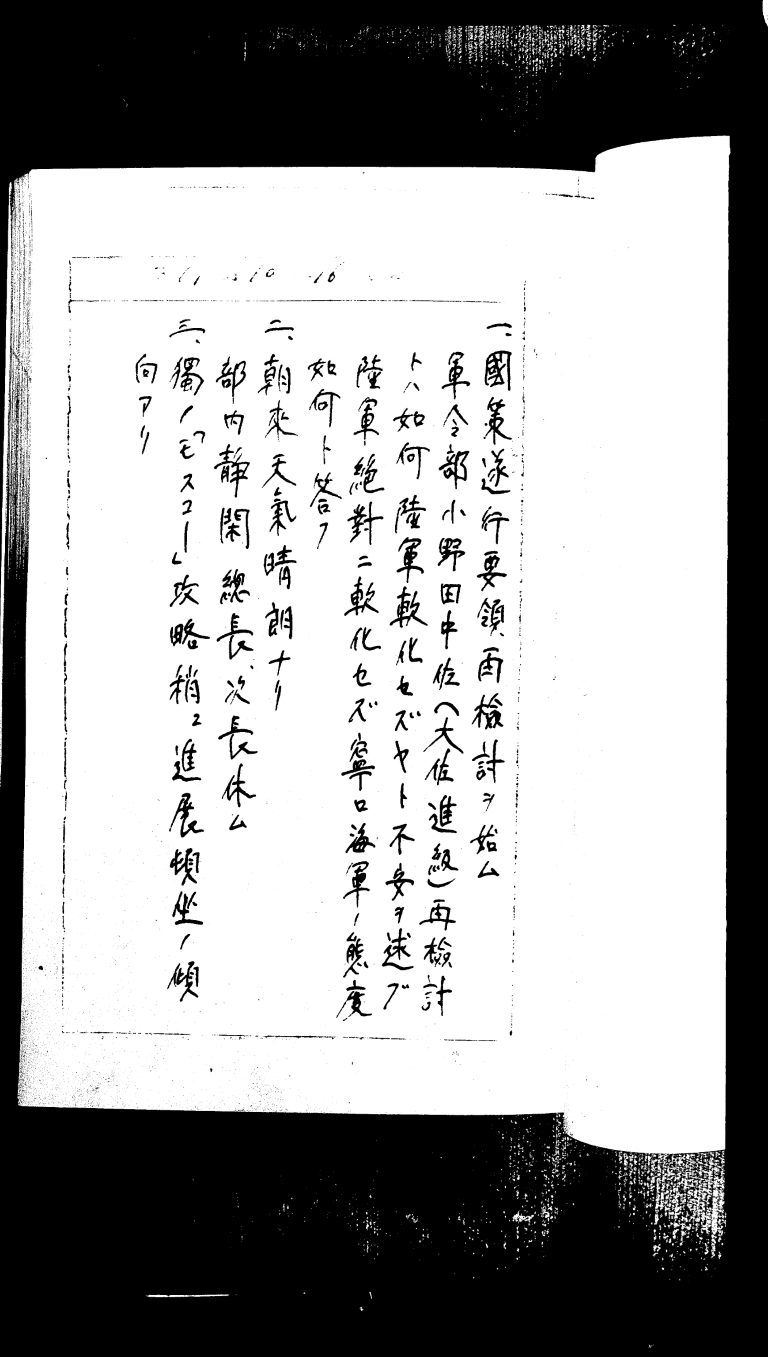 一、國策遂行要領再檢討ヲ始ム
軍令部小野田中佐(大佐進級)再檢討
トハ如何 陸軍軟化セズヤト不安ヲ述ブ
陸軍絶對ニ軟化セズ寧ロ海軍ノ態度
如何ト答フ
二、朝來天氣晴朗ナリ
部内靜閑 總長、次長休ム
三、獨ノ「モスコー」攻略稍〻進展頓坐ノ傾
向アリ